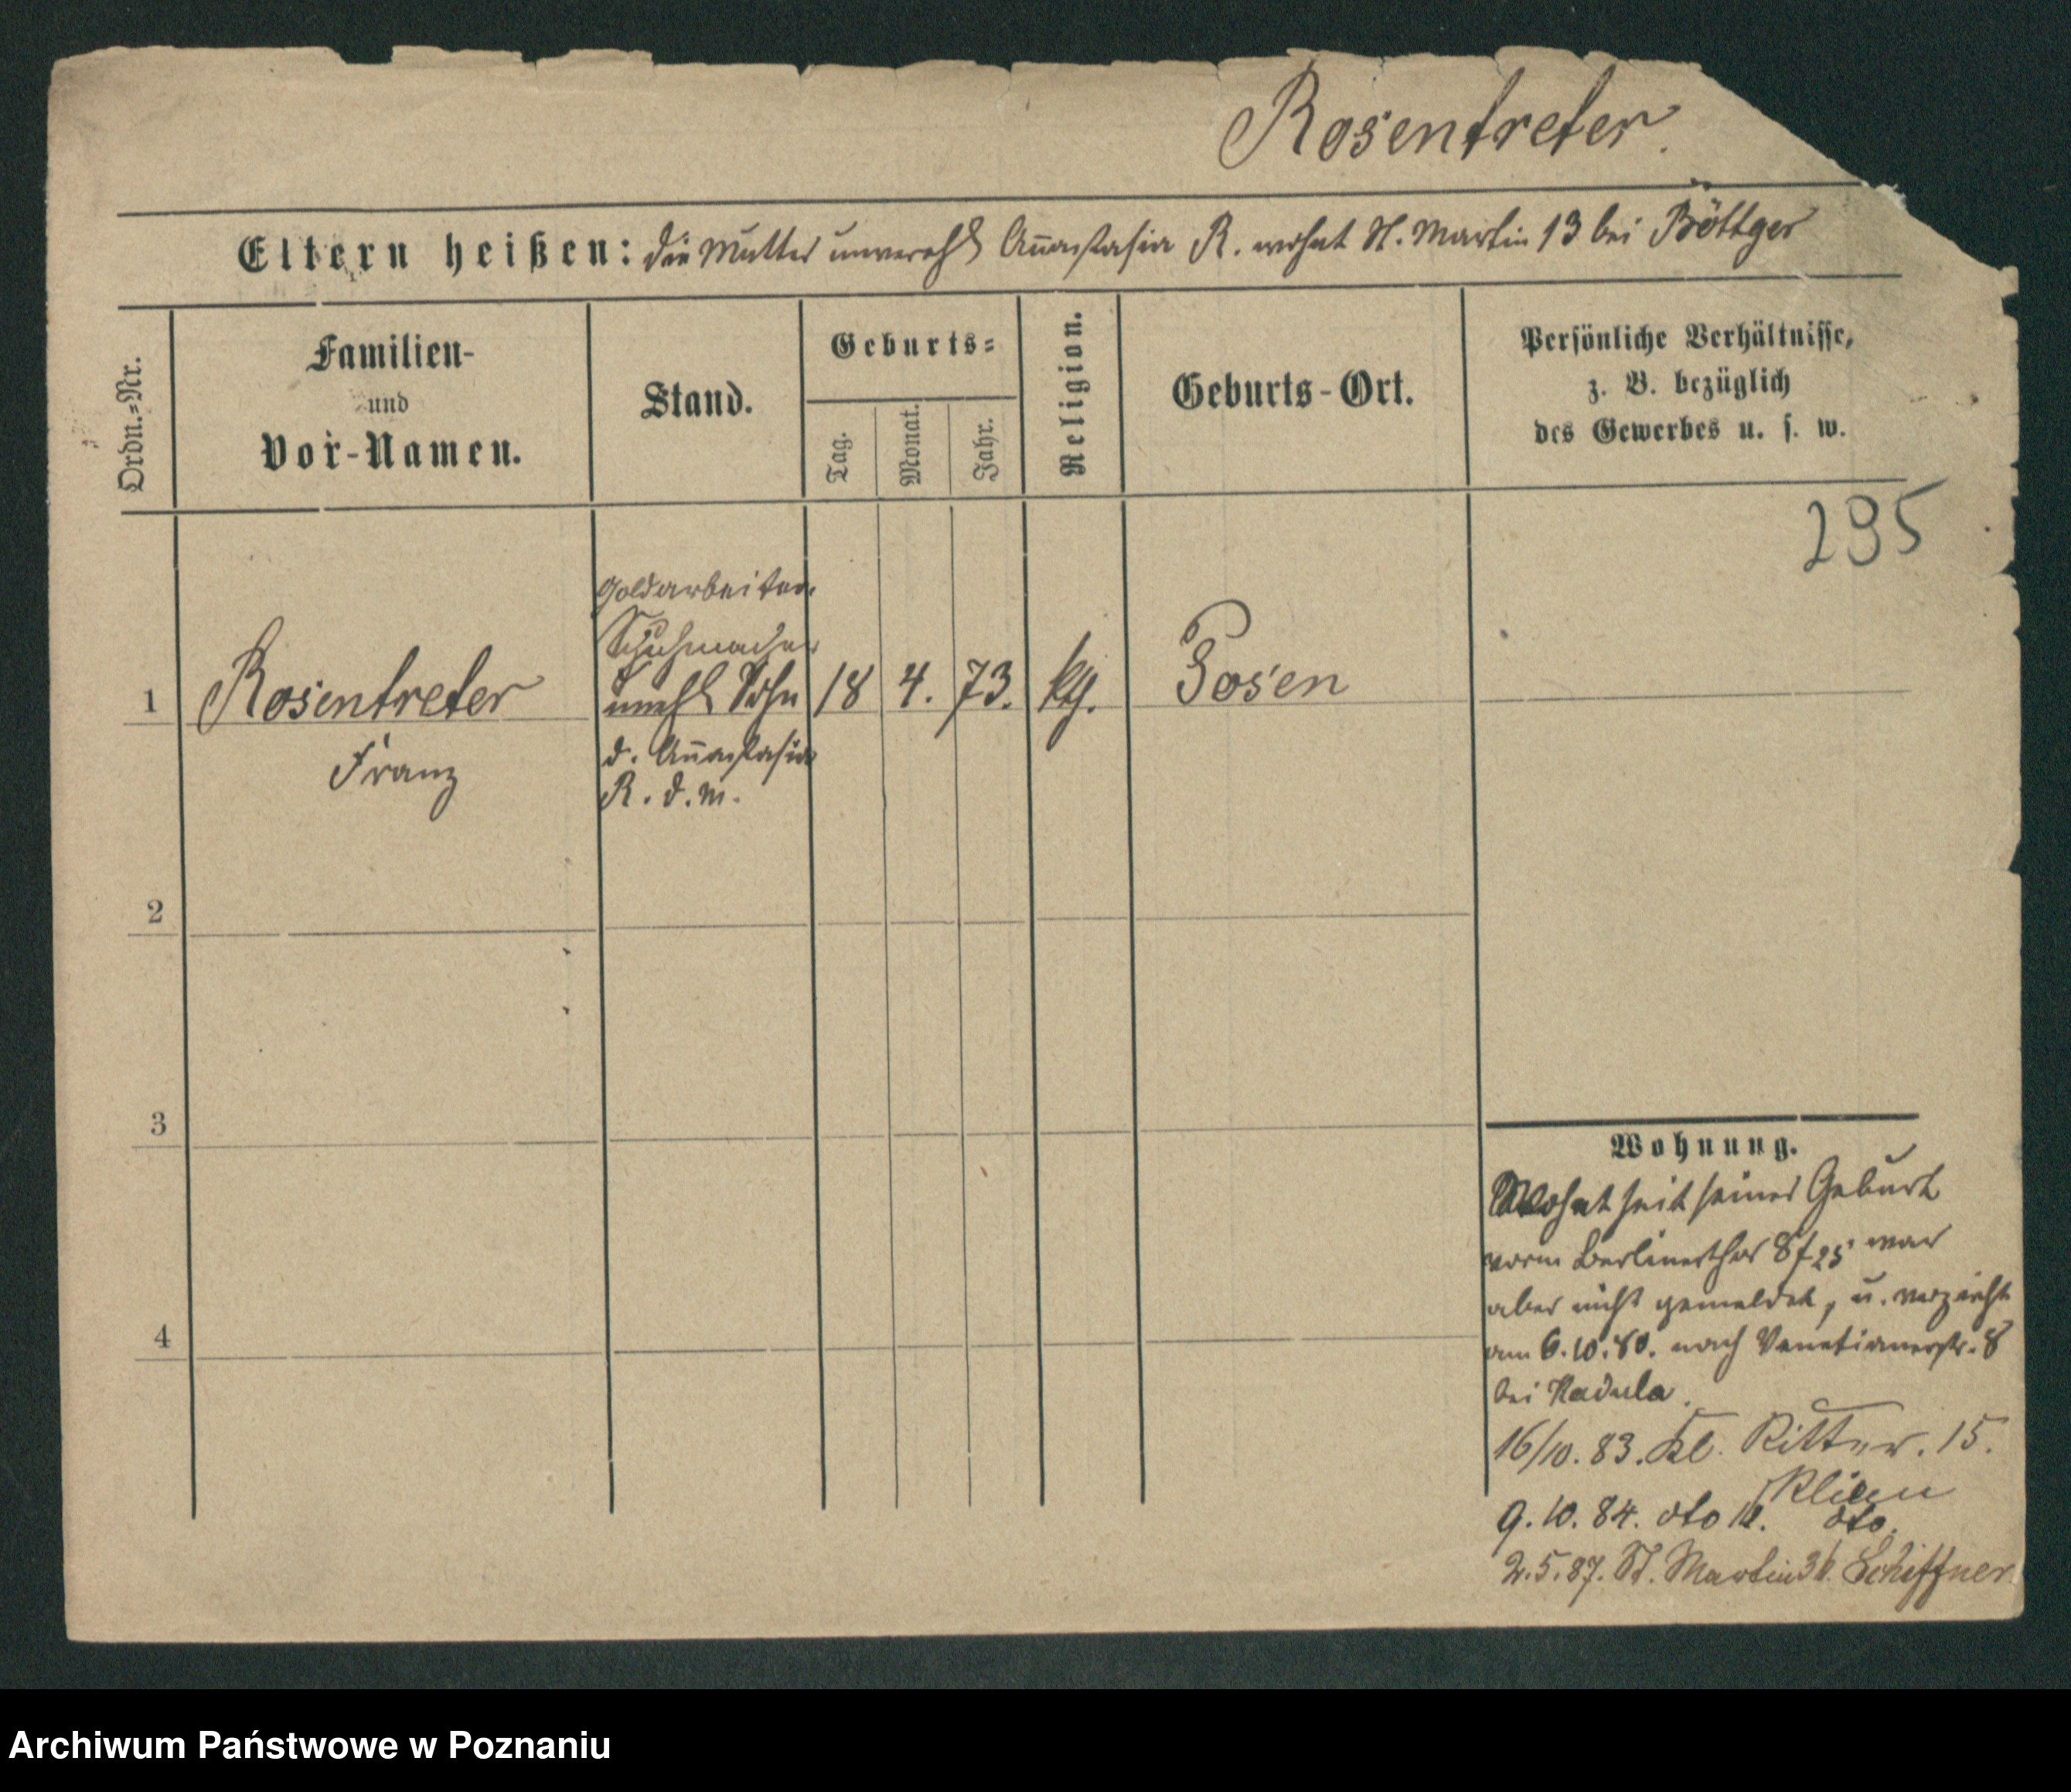 Rosentreter.
Eltern heißen: die Mutter unverehl Anastasia R. wohnt St. Martin 13 bei Böttger
Ordn.-Nr.
Familien-
und
Vor-Namen.
Stand.
Geburts-
Tag.
Monat.
Jahr.
Religion.
Geburts-Ort.
Persönliche Verhältnisse,
z. B. bezüglich
des Gewerbes u. s. w.
295
Goldarbeiter
Schuhmacher
1 Rosentreter unehl Sohn 18 4. 73. kth. Posen
Franz d. Anastasia
R. d. m.
2
3
4
Wohnung.
Wohnt seit seiner Geburt
vorm Berlinerthor 8f 25 war
aber nicht gemeldet, u. verzieht
am 6.10.80. nach Venetianerstr. 8
bei Kadula.
16/10. 83. Kl. Ritter. 15.
9. 10. 84. dto dto.
2. 5. 87. St. Martin Schiffner
Archiwum Państwowe w Poznaniu